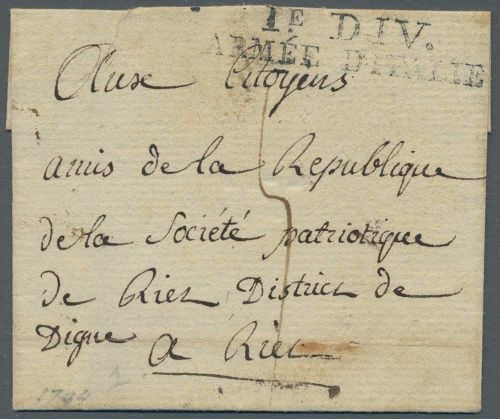 1E DIV.
ARMÉE D'ITALIE
Aux Citoyens
amis de la Republique
de la Société patriotique
de Riez District de
Digne
a Riez
5
1794
1